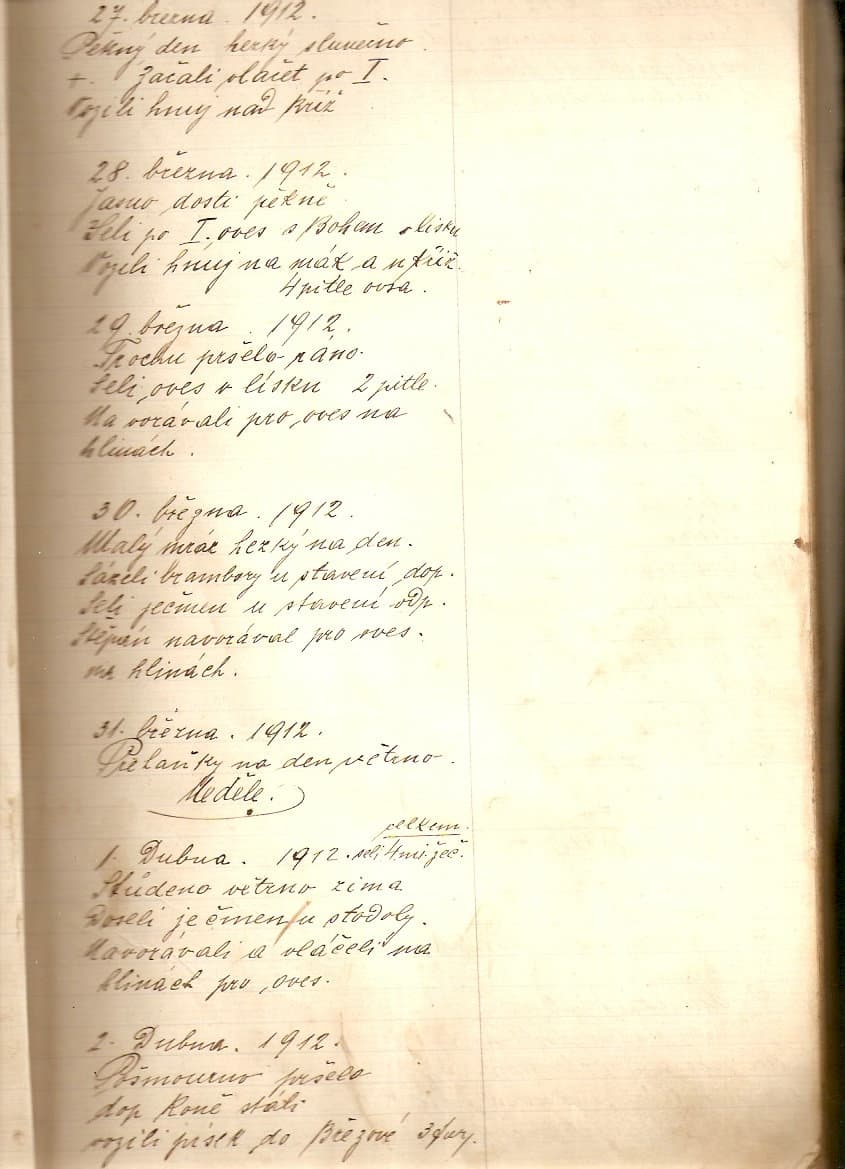 27. března. 1912.
Pěkný den hezký slunečno.
+. Začali vláčet po I.
Vozili hnuj nad kříž
28. března. 1912.
Jasno dosti pěkně
Seli po I. oves s Bohem v lísku
Vozili hnuj na mák a u kříž.
4 pitle ovsa.
29. března. 1912.
Trochu pršelo ráno.
Seli oves v lísku 2 pitle.
Na vorávali pro oves na
hlinách.
30. března. 1912.
Malý mráz hezký na den.
Sázeli brambory u stavení dop.
Seli ječmen u stavení odp.
Štěpán navorával pro oves.
na hlinách.
31. března. 1912.
na den větrno.
Neděle.
celkem.
1. Dubna. 1912. seli 4 mi. ječ.
Studeno větrno zima
Doseli ječmen u stodoly.
Navorávali a vláčeli na
hlinách pro oves.
2. Dubna. 1912.
Pošmourno pršelo
dop koně stáli
vozili písek do Březové 3 fury.